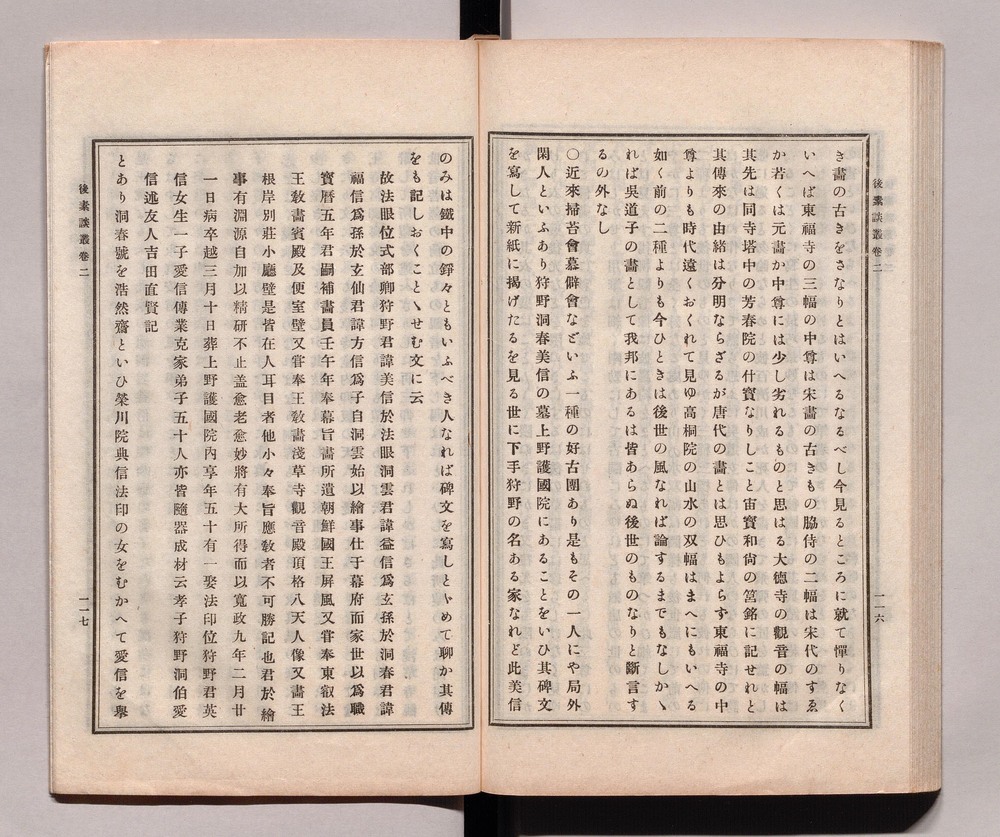 後素談叢卷二
一一六
き畵の古きをさなりとはいへるなるべし今見るところに就て憚りなく
いへば東福寺の三幅の中尊は宋畵の古きもの脇侍の二幅は宋代のすゑ
か若くは元畵か中尊には少し劣れるものと思はる大德寺の觀音の幅は
其先は同寺塔中の芳春院の什寳なりしこと宙寳和尙の筥銘に記せれと
其傳來の由緖は分明ならざるが唐代の畵とは思ひもよらす東福寺の中
尊よりも時代遠くおくれて見ゆ高桐院の山水の双幅はまへにもいへる
如く前の二種よりも今ひときは後世の風なれば論するまでもなしかゝ
れば吳道子の畵として我邦にあるは皆あらぬ後世のものなりと斷言す
るの外なし
〇近來掃苔會慕僻會などいふ一種の好古團あり是もその一人にや局外
閑人といふあり狩野洞春美信の墓上野護國院にあることをいひ其碑文
を寫して新紙に揭げたるを見る世に下手狩野の名ある家なれど此美信
のみは鐵中の錚々ともいふべき人なれば碑文を寫しとゞめて聊か其傳
をも記しおくことゝせむ文に云
故法眼位式部卿狩野君諱美信於法眼洞雲君諱益信爲玄孫於洞春君諱
福信爲孫於玄仙君諱方信爲子自洞雲始以繪事仕于幕府而家世以爲職
寳曆五年君嗣補畵員壬午年奉幕旨畵所遺朝鮮國王屏風又甞奉東叡法
王敎畵賓殿及便室壁又甞奉王敎畵淺草寺觀音殿頂格八天人像又畵王
根岸別莊小廳壁是皆在人耳目者他小々奉旨應敎者不可勝記也君於繪
事有淵源自加以精硏不止盖愈老愈妙將有大所得而以寬政九年二月廿
一日病卒越三月十日葬上野護國院內享年五十有一娶法印位狩野君英
信女生一子愛信傳業克家弟子五十人亦皆隨器成材云孝子狩野洞伯愛
信述友人吉田直賢記
とあり洞春號を浩然齋といひ榮川院典信法印の女をむかへて愛信を擧
後素談叢卷二
一一七